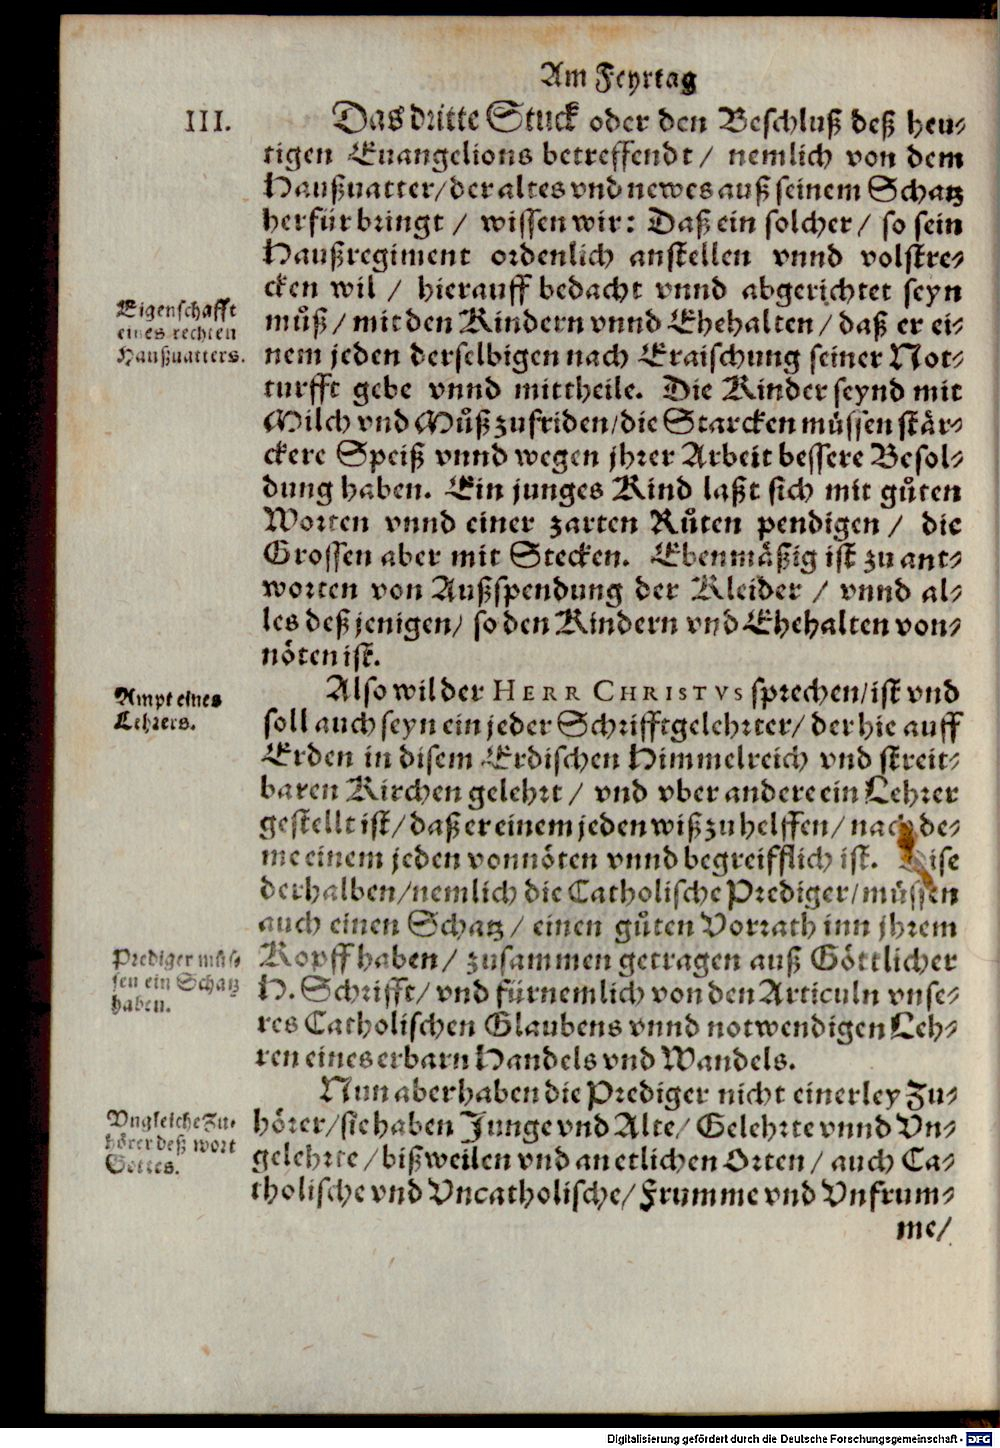 Am Feyrtag
III.
Das dritte Stuck oder den Beschluß deß heu-
tigen Euangelions betreffendt / nemlich von dem
Haußuatter / der altes vnd newes auß seinem Schatz
herfür bringt / wissen wir: Daß ein solcher / so sein
Haußregiment ordenlich anstellen vnnd volstre-
cken wil / hierauff bedacht vnnd abgerichtet seyn
Eigenschafft
eines rechten
Haußuatters.
muͦß / mit den Kindern vnnd Ehehalten / daß er ei-
nem jeden derselbigen nach Eraischung seiner Not-
turfft gebe vnnd mittheile. Die Kinder seynd mit
Milch vnd Muͦß zufriden / die Starcken müssen stär-
ckere Speiß vnnd wegen jhrer Arbeit bessere Besol-
dung haben. Ein junges Kind laßt sich mit guͦten
Worten vnnd einer zarten Ruͦten pendigen / die
Grossen aber mit Stecken. Ebenmäßig ist zu ant-
worten von Außspendung der Kleider / vnnd al-
les deß jenigen / so den Kindern vnd Ehehalten von-
nöten ist.
Ampt eines
Lehrers.
Also wil der HERR CHRISTVS sprechen / ist vnd
soll auch seyn ein jeder Schrifftgelehrter / der hie auff
Erden in disem Erdischen Himmelreich vnd streit-
baren Kirchen gelehrt / vnd vber andere ein Lehrer
gestellt ist / daß er einem jeden wiß zu helffen / nach de-
me einem jeden vonnöten vnnd begreifflich ist. Dise
derhalben / nemlich die Catholische Prediger / müssen
auch einen Schatz / einen guͦten Vorrath inn jhrem
Prediger müs-
sen ein Schatz
haben.
Kopff haben / zusammen getragen auß Göttlicher
H. Schrifft / vnd fürnemlich von den Articuln vnse-
res Catholischen Glaubens vnnd notwendigen Leh-
ren eines erbarn Handels vnd Wandels.
Nun aber haben die Prediger nicht einerley Zu-
Vngleiche Zu-
hörer deß wort
Gottes.
hörer / sie haben Junge vnd Alte / Gelehrte vnnd Vn-
gelehrte / bißweilen vnd an etlichen Orten / auch Ca-
tholische vnd Vncatholische / Frumme vnd Vnfrum-
me /
Digitalisierung gefördert durch die Deutsche Forschungsgemeinschaft - DFG